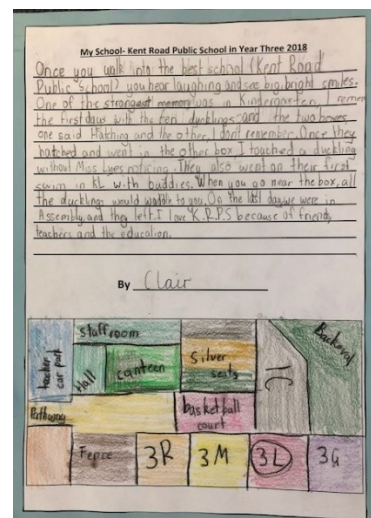 My School- Kent Road Public School in Year Three 2018
Once you walk into the best school (Kent Road
Public School) you hear laughing and see big, bright smiles.
One of the strongest memory was in Kindergarten. I remem
the first days with the ten ducklings and the two boxes,
one said Hatching and the other, I dont remember. Once they
hatched and went in the other box I touched a duckling
without Miss noticing. They also went on their first
swim in KL with buddies. When you go near the box, all
the ducklings would waddle to you. On the last day we were in
Assembly, and they left. I love K.R.P.S because of friends,
teachers and the education.
By Clair
teacher car park
staff room
Hall
canteen
Silver seats
1C
Back oval
Pathway
basketball court
Fence
3R
3M
3L
3G